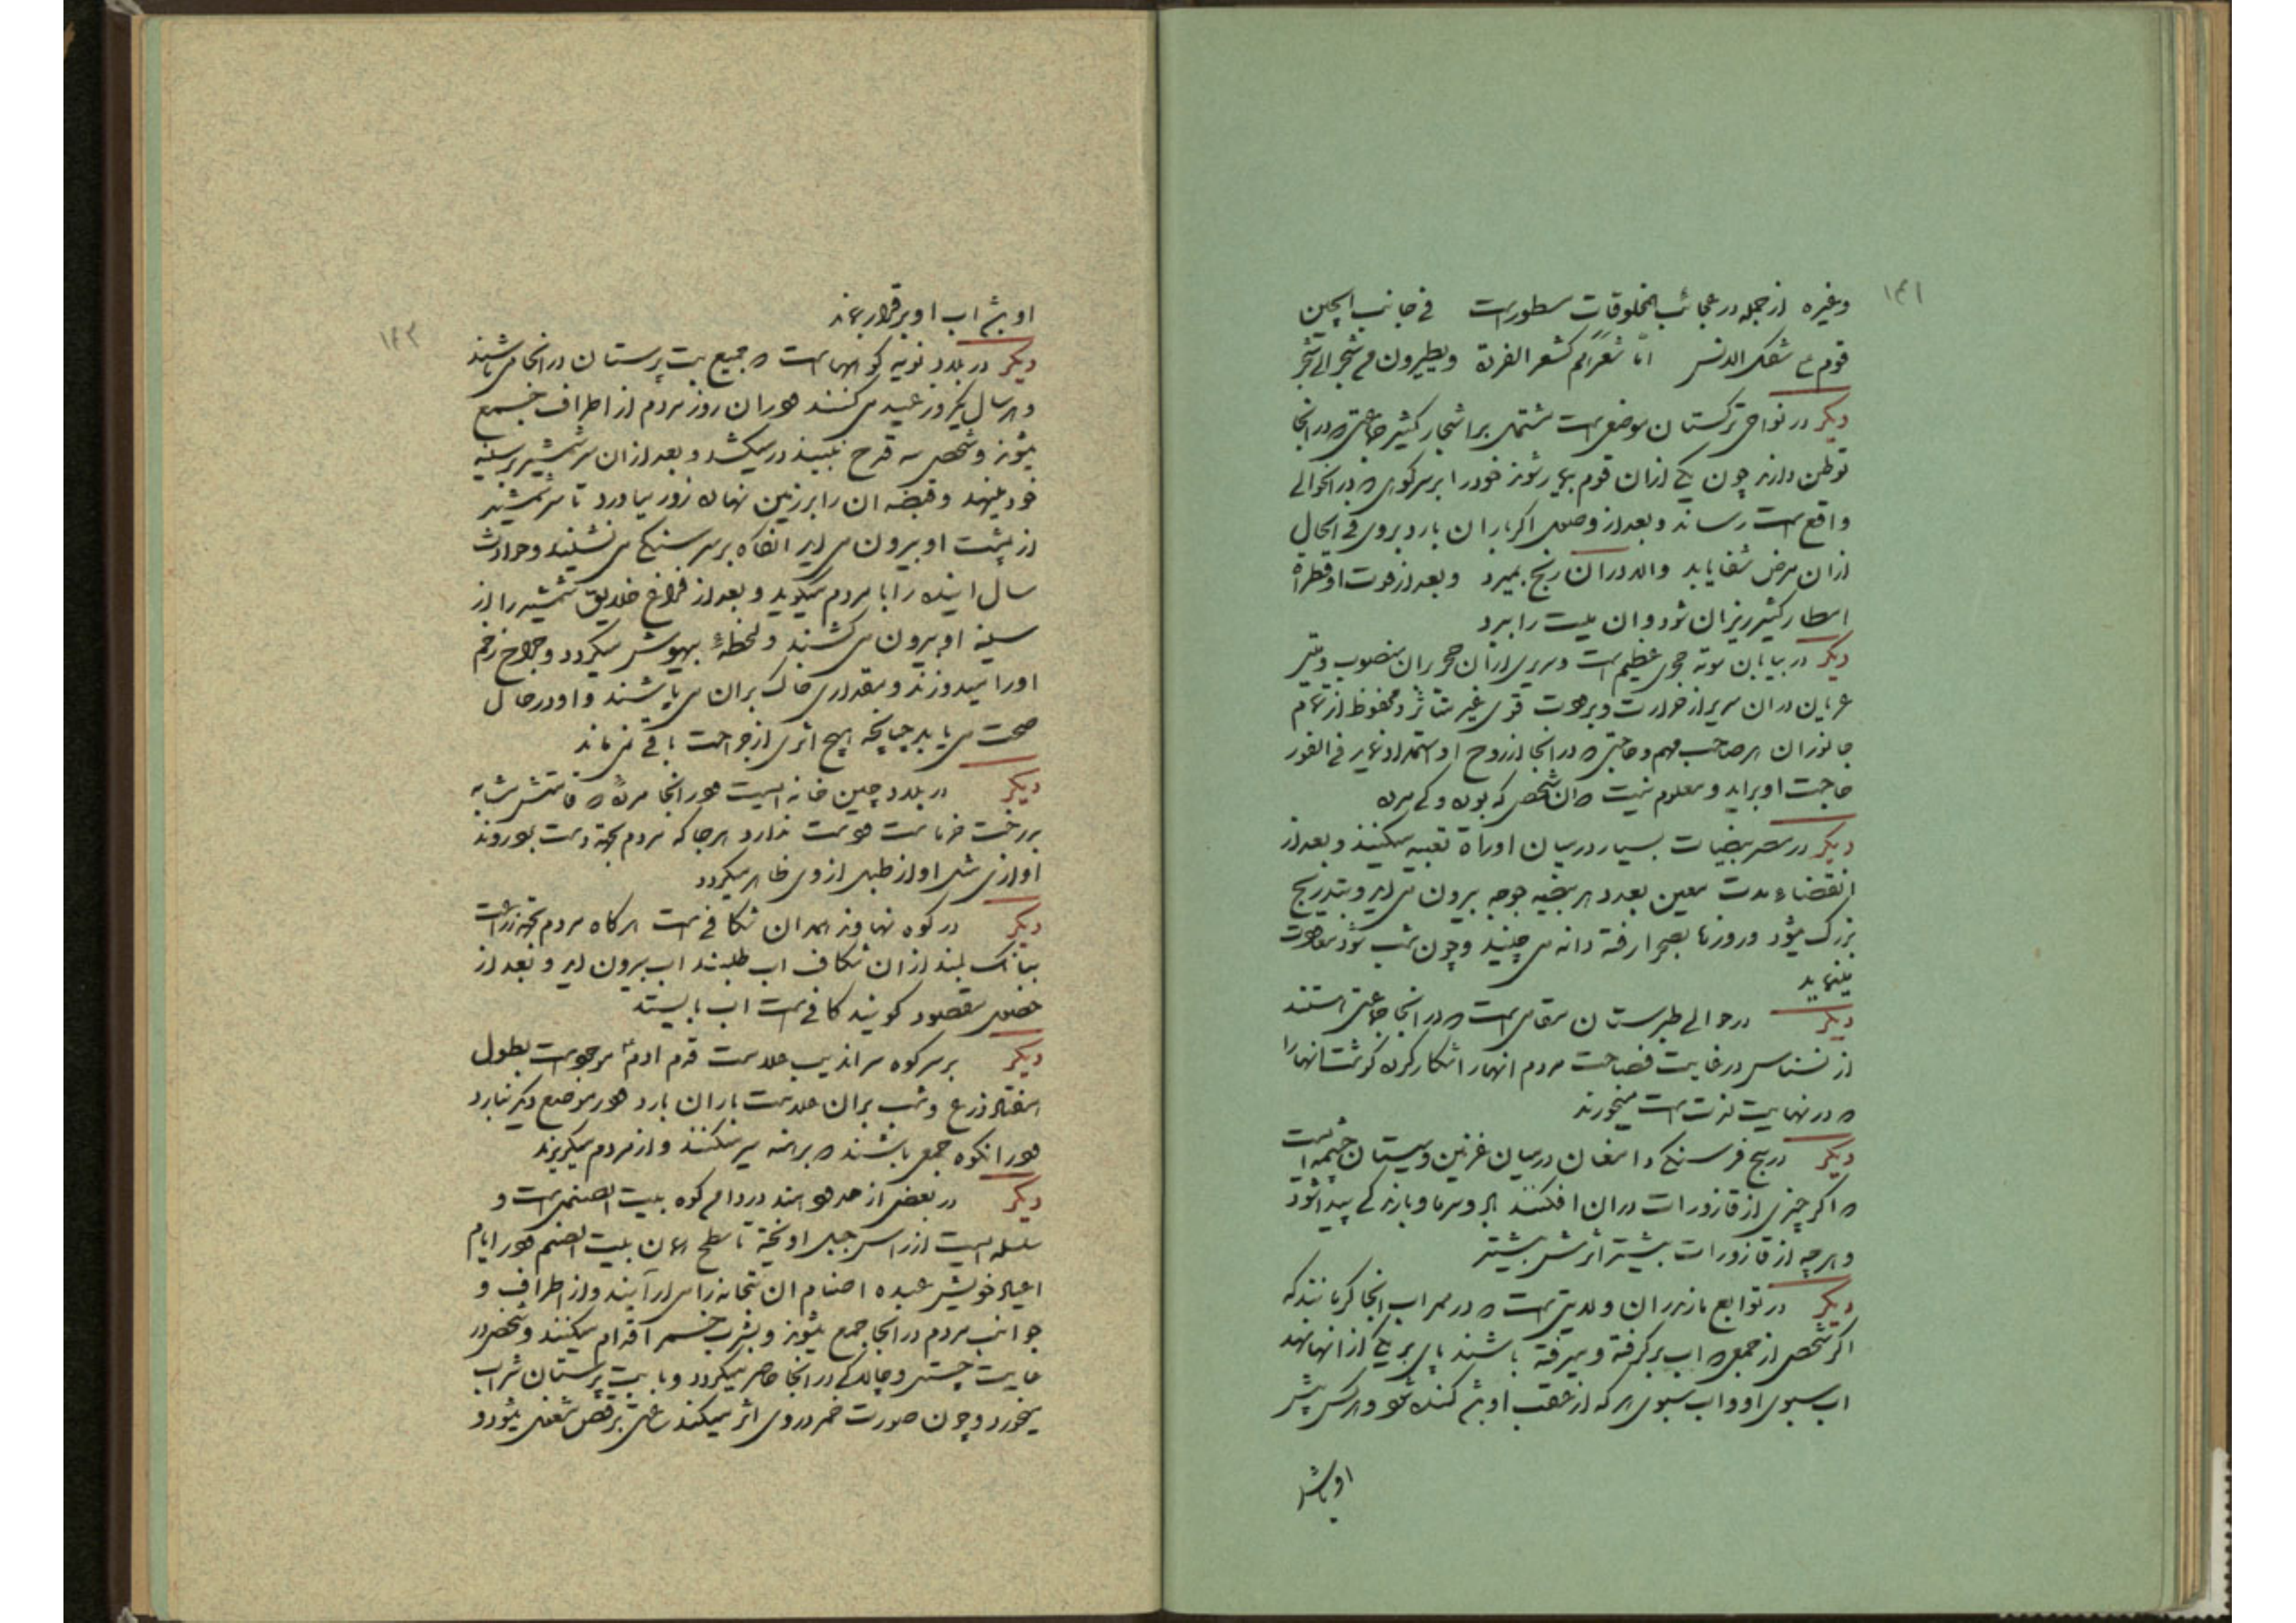 ۱۴۱
وغیره از جمله در عجائب المخلوقات مسطور است فی جانب الچین
قوم شکل الدنس اما شعرهم کشعر الفرة و یطیرون من شجر الی شجر
دیکر در نواحی ترکستان موضعی است مشتمل بر اشجار کثیر جماعتی که در انجا
توطن دارند چون یکی از ان قوم بیمار شوند خود را بر سر کوهی که در انحوالی
واقع است رساند و بعد از وصول اکر باران بارد بروی فی الحال
از ان مرض شفا یابد والا در ان رنج بمیرد و بعد از فوت او قطراة
امطار کثیر ریزان شود و ان میت را ببرد
دیکر در بیابان موته حجری عظیم است و سریری از ان حجر بران منصوب و میتی
عریان در ان سریر از حرارت و برودت قوی غیر متأثر و محفوظ از تمام
جانوران هر صاحب مهم و حاجتی که در انجا از روح او استمداد نماید فی الفور
حاجت او براید و معلوم نیست که ان شخص که بوده و کی مرده
دیکر در مصر بیضیات بسیار در میان تعبیه میکنند و بعد از
انقضاء مدت معین بعدد هر بیضه جوجه بیرون می اید و بتدریج
بزرک میشود و روزها بصحرا رفته دانه می چینید و چون شب شود معاودت
مینماید
دیکر در حوالی طبرستان مقامی است که در انجا جماعتی هستند
از نسناس در غایت فصاحت مردم انهارا شکار کرده کوشت انهارا
که در نهایت لذت است میخورند
دیکر در پنج فرسنکی دامغان در میان غزنین و سیستان چشمه ایست
که اکر چیزی از قازورات دران افکنند ابر و سرما و بارندکی پیدا شود
و هر چه از قازورات بیشتر اثرش بیشتر
دیکر در توابع مازندران ولایتی است که در ممر اب انجا کرمانند که
اکر شخصی از جمعی که اب برکرفته و میرفته باشند پای بر یکی از انها نهد
اب سبوی او و اب سبوی هر که از عقب او باشد کنده شود و هر کس پیش
او باشد
۱۴۲
او باشد اب او برقرار بماند
دیکر در بلاد نوبیه کوهها است که جمیع بت پرستان در انجا می باشند
و هر سال یکروز عید می کنند و در ان روز مردم از اطراف جمع
میشوند و شخصی سه قدح نبیند در میکشد و بعد از ان سر شمشیر بر سینه
خود مینهد و قبضه ان را بر زمین نهاده زور میاورد تا سر شمشیر
از پشت او بیرون می اید انکاه بر سر سنکی می نشنید و حوادث
سال اینده را با مردم میکوید و بعد از فراغ خلایق شمشیر را از
سینه او بیرون می کشند و لحظهٔ بیهوش میکردد و جراح زخم
اورا میدوزند و مقداری خاک بران می پاشند و او در حال
صحت می یابد چنانچه هیچ اثری از جراحت باقی نمی ماند
دیکر در بلاد چین خانه ایست و در انجا مرده که قامتش شبه
بدرخت خرما است و دست ندارد هر جا که مردم بجهة دست بوروند
اوازی مثل اواز طبل از وی ظاهر میکردد
دیکر در کوه نهاوند همدان شکافی است هر کاه مردم بجهة زراعت
ببانک بلند از ان شکاف اب طلبند اب بیرون اید و بعد از
حصول مقصود کویند کافی است اب بایستد
دیکر بر سر کوه سراندیب علامت قدم ادم ع موجود است بطول
هفتاد ذرع و شب بران علامت باران بارد و در موضع دیکر نبارد
و در انکوه جمعی باشند که برهنه سیر میکنند و از مردم میکریزند
دیکر در بعضی از حدود هند در دامن کوه بیت الصنمی است و
سلسله ایست از راس جبل اویخته تا سطح همان بیت الصنم و در ایام
اعیاد خویش عبده اصنام ان بتخانه را می ارآیند و از اطراف و
جوانب مردم در انجا جمع میشوند و بشرب خمر اقدام میکنند و شخصی در
غایت چستی و چالاکی در انجا حاضر میکردد و با بت پرستان شراب
میخورد و چون صورت خمر در وی اثر میکند ساعتی برقص مشغول میشود و